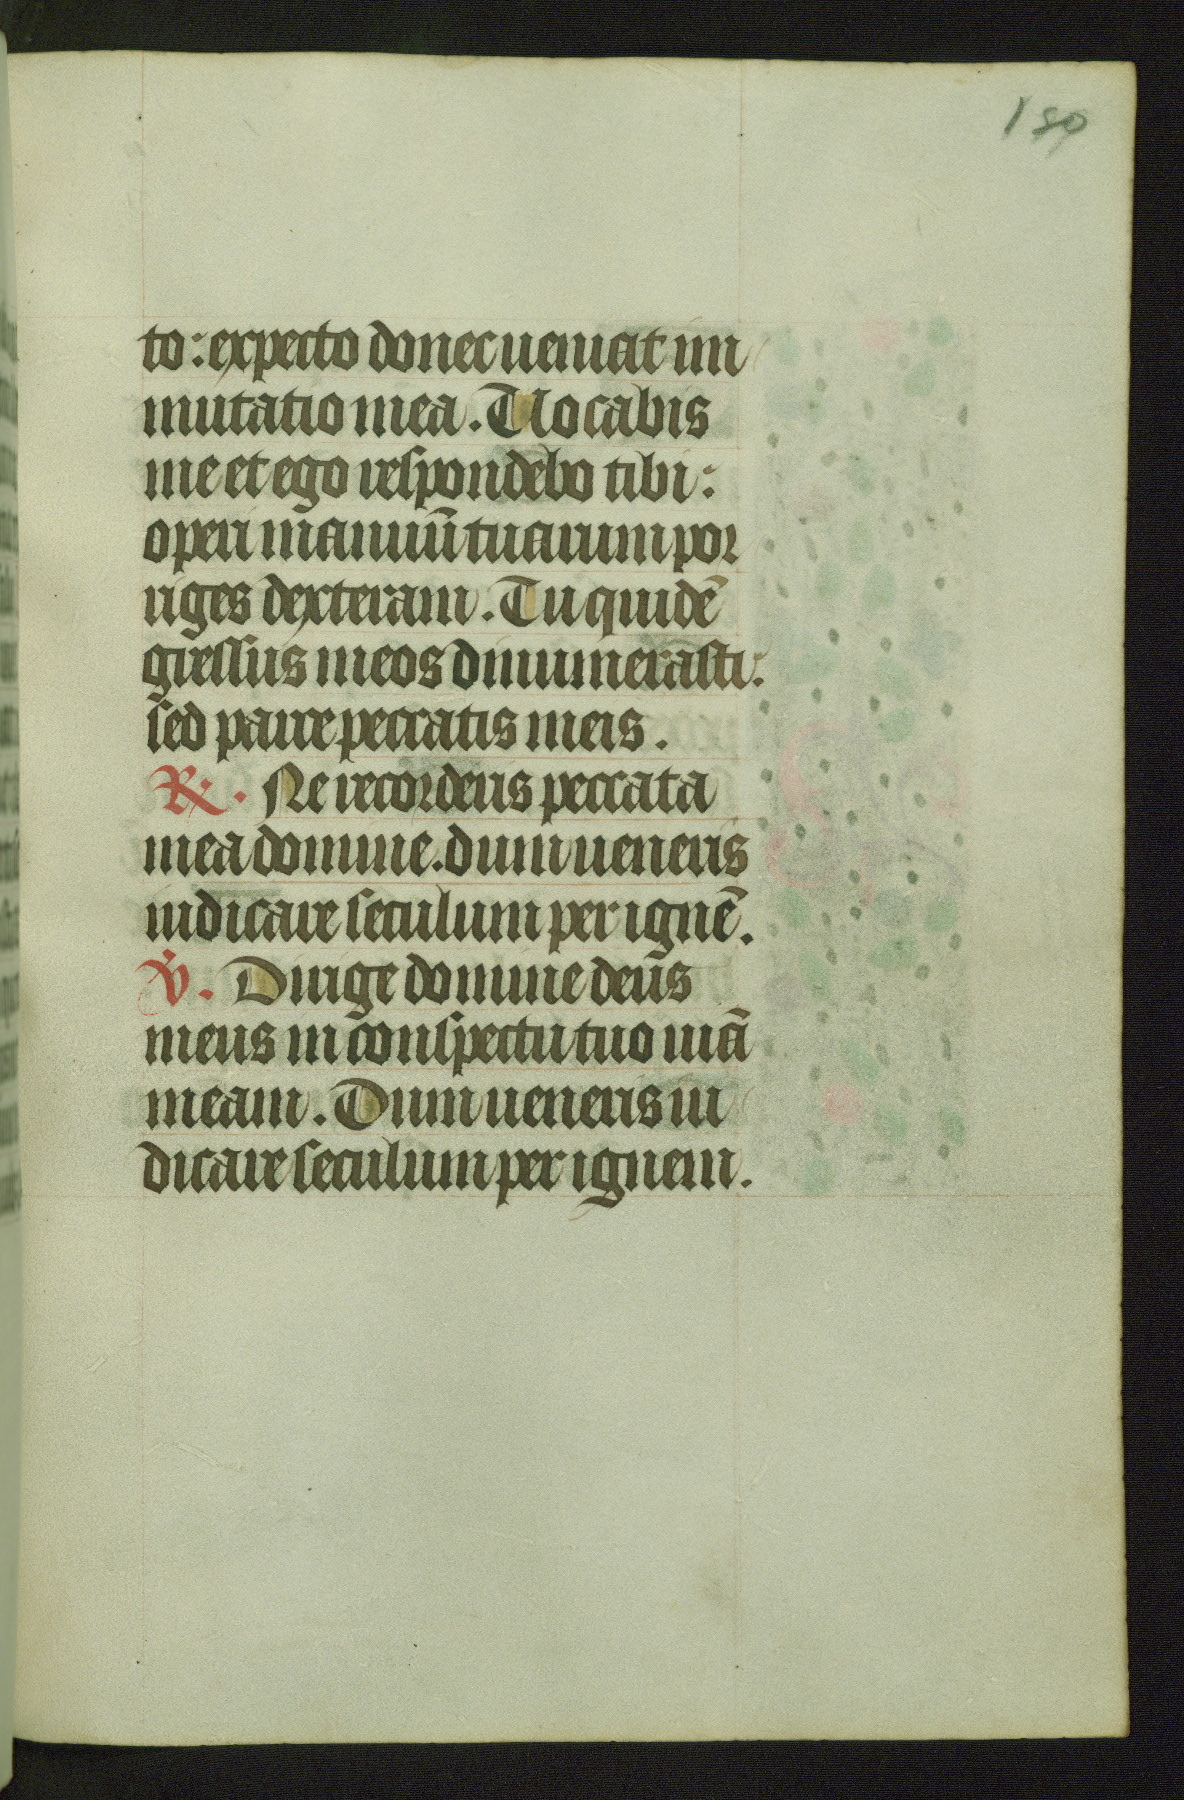 180
to: expecto donec ueniat im
mutatio mea. Uocabis
me et ego respondebo tibi:
operi manuū tuarum por
riges dexteram. Tu quidē
gressus meos dinumerasti:
sed parce peccatis meis.
℟. Ne recorderis peccata
mea domine. dum ueneris
iudicare seculum per ignē.
℣. Dirige domine deus
meus in conspectu tuo uiā
meam. Dum ueneris iu
dicare seculum per ignem.